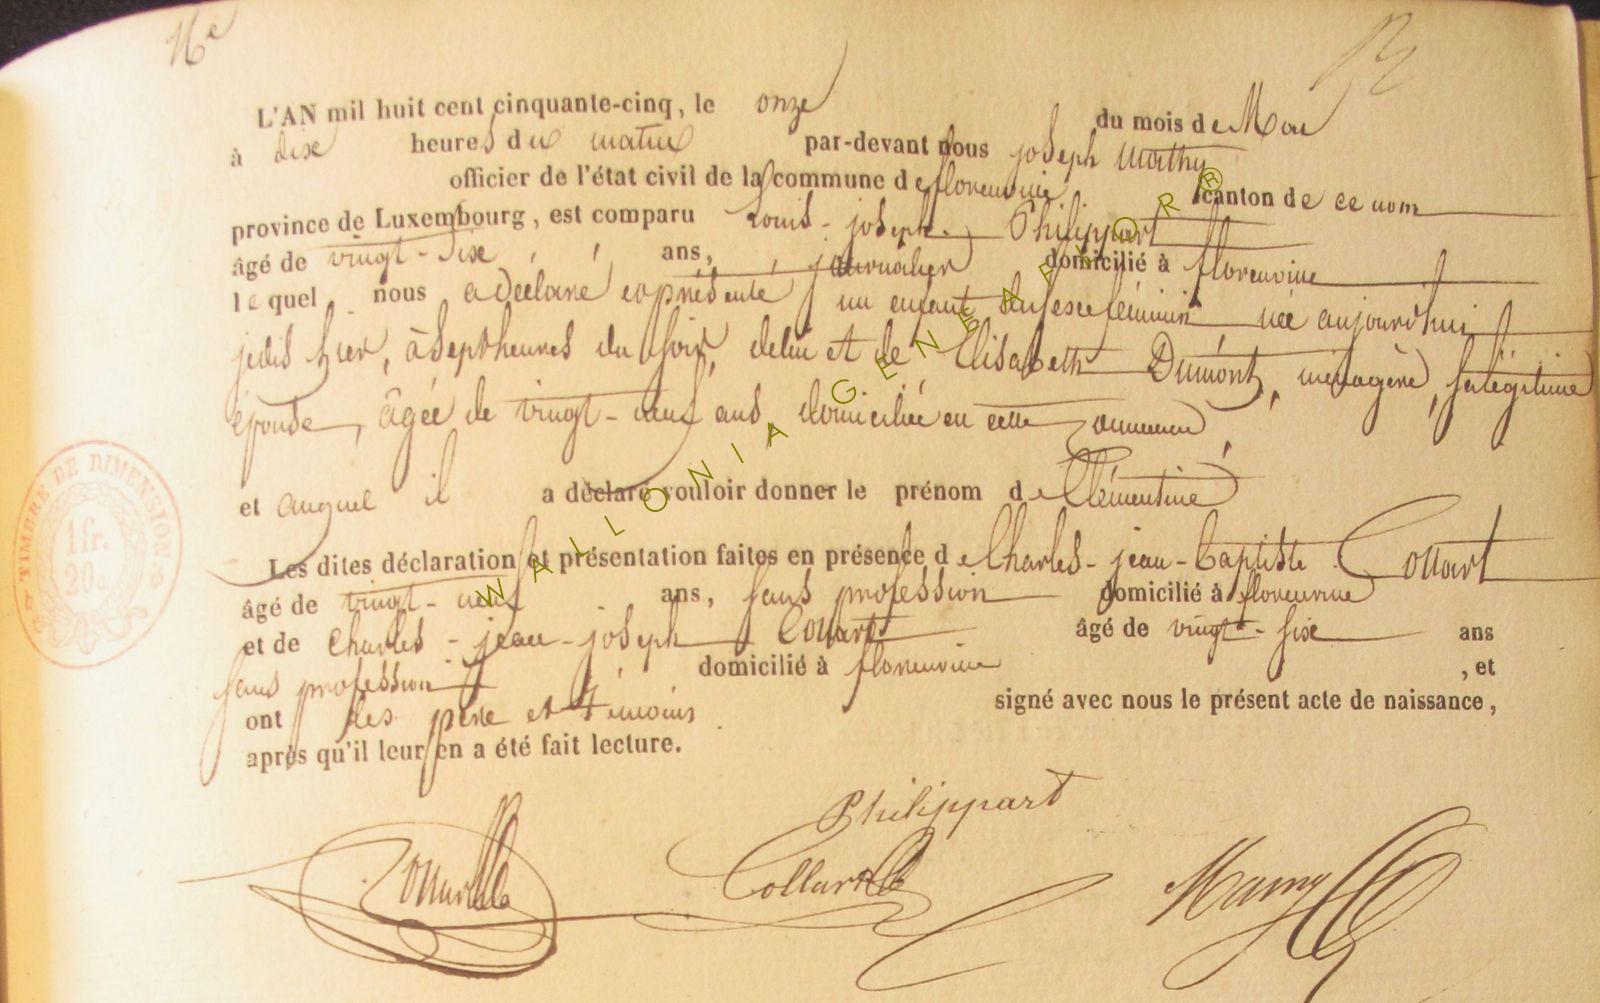 16e
L'AN mil huit cent cinquante-cinq, le onze du mois de Mai
à dix heures du matin par-devant nous joseph Mathy
officier de l'état civil de la commune de florenville canton de ce nom
province de Luxembourg, est comparu Louis-joseph Philippart
âgé de vingt-six ans, journalier domicilié à florenville
lequel nous a déclaré et présenté un enfant du sexe féminin née aujourd'hui
jedis hier, à sept heures du soir, de lui et de Elisabeth Dumont, ménagère, sa légitime
épouse, âgée de vingt-neuf ans domiciliée en cette commune,
et auquel il a déclaré vouloir donner le prénom de Clémentine
Les dites déclaration et présentation faites en présence de Charles-jean-baptiste Collart
âgé de vingt-neuf ans, sans profession domicilié à florenville
et de Charles-jean-joseph Collart âgé de vingt-six ans
sans profession domicilié à florenville, et
ont les père et témoins signé avec nous le présent acte de naissance,
après qu'il leur en a été fait lecture.
Philippart
Collart
TIMBRE DE DIMENSION
1 fr.
20c
WALLONIA GENEANOR®